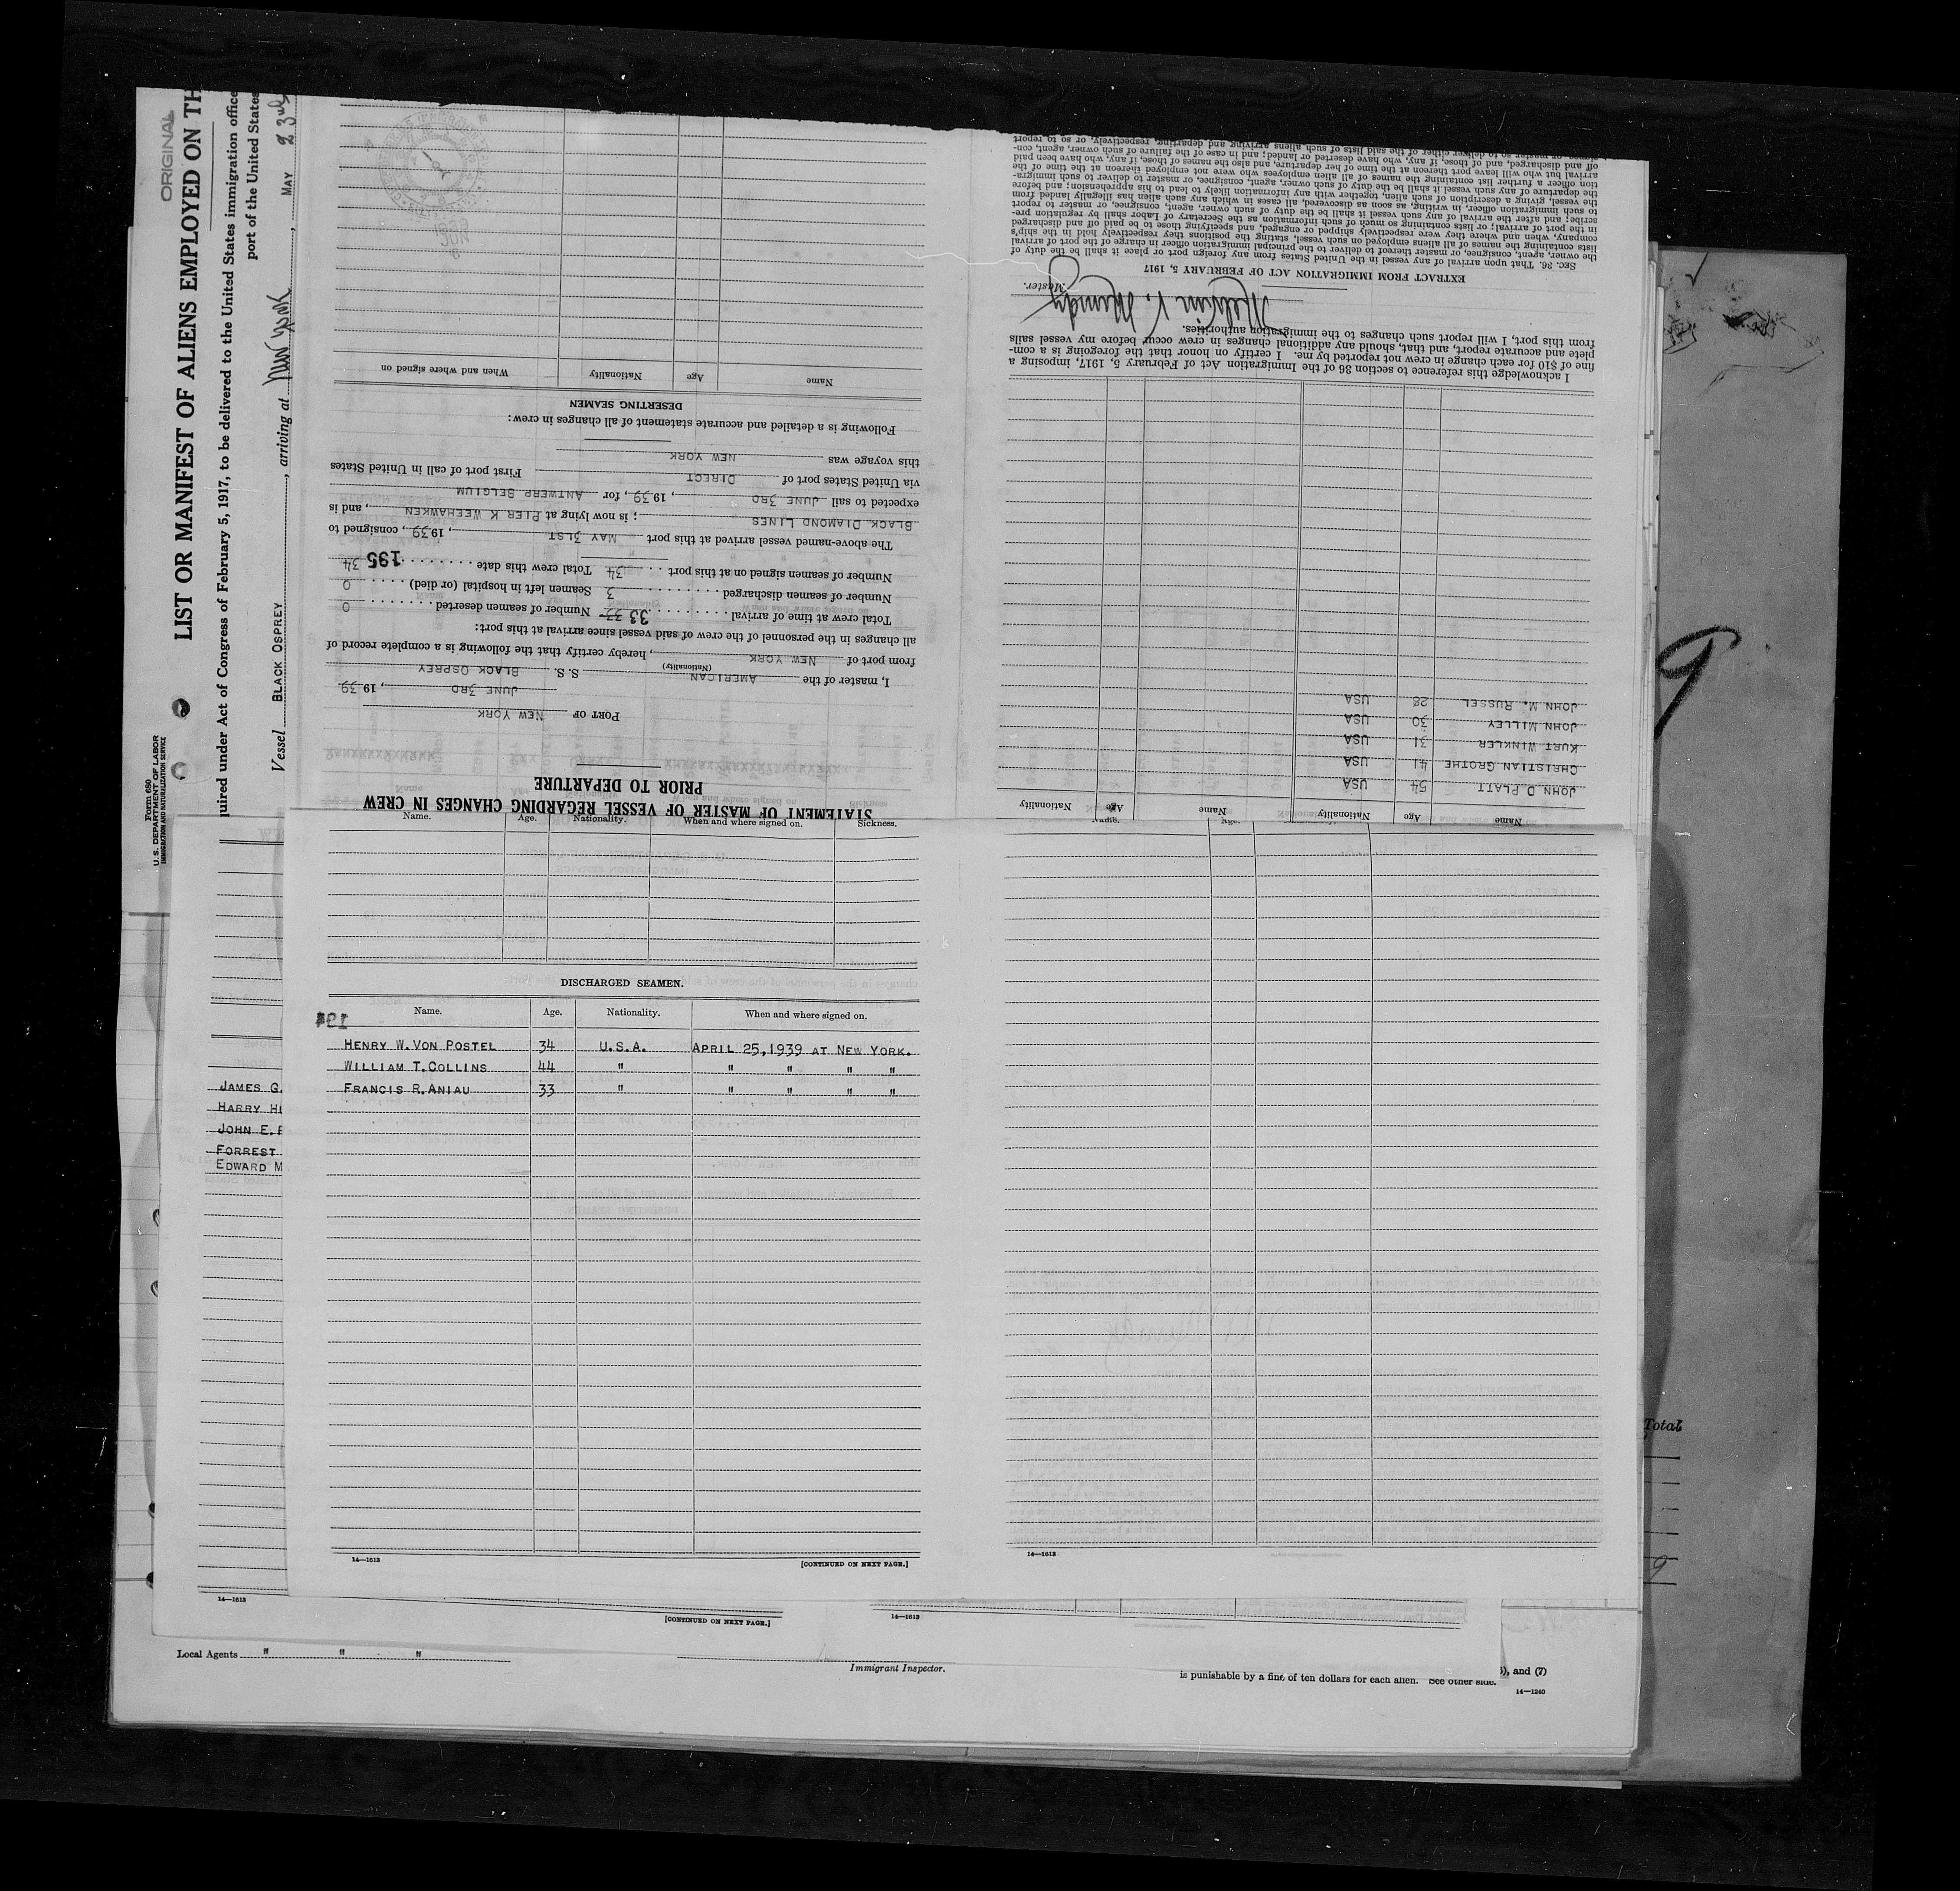 ORIGINAL
LIST OR MANIFEST OF ALIENS EMPLOYED ON TH
uired under Act of Congress of February 5, 1917, to be delivered to the United States immigration office
port of the United States
Vessel BLACK OSPREY, arriving at New York, MAY
Form 680
U. S. DEPARTMENT OF LABOR
IMMIGRATION AND NATURALIZATION SERVICE
STATEMENT OF MASTER OF VESSEL REGARDING CHANGES IN CREW
PRIOR TO DEPARTURE
PORT OF NEW YORK
JUNE 3RD, 1939
I, master of the AMERICAN S. S. BLACK OSPREY
(Nationality)
from port of NEW YORK, hereby certify that the following is a complete record of
all changes in the personnel of the crew of said vessel since arrival at this port:
Total crew at time of arrival 33 Number of seamen deserted 0
Number of seamen discharged 3 Seamen left in hospital (or died) 0
Number of seamen signed on at this port 34 Total crew this date 195 34
The above-named vessel arrived at this port MAY 31ST, 1939, consigned to
BLACK DIAMOND LINES; is now lying at PIER K WEEHAWKEN, and is
expected to sail JUNE 3RD, 1939, for ANTWERP BELGIUM
via United States port of DIRECT First port of call in United States
this voyage was NEW YORK
Following is a detailed and accurate statement of all changes in crew:
DESERTING SEAMEN
Name Age Nationality When and where signed on
Name Age Nationality Name Age Nationality
JOHN D PLATT 54 USA
CHRISTIAN GROTHE 41 USA
KURT WINKLER 31 USA
JOHN MILLEY 30 USA
JOHN M. RUSSEL 28 USA
I acknowledge this reference to section 36 of the Immigration Act of February 5, 1917, imposing a
fine of $10 for each change in crew not reported by me. I certify on honor that the foregoing is a com-
plete and accurate report, and that, should any additional changes in crew occur before my vessel sails
from this port, I will report such changes to the immigration authorities.
Melvin V. Mundy
Master.
EXTRACT FROM IMMIGRATION ACT OF FEBRUARY 5, 1917
Sec. 36. That upon arrival of any vessel in the United States from any foreign port or place it shall be the duty of
the owner, agent, consignee, or master thereof to deliver to the principal immigration officer in charge of the port of arrival
lists containing the names of all aliens employed on such vessel, stating the positions they respectively hold in the ship's
company, when and where they were respectively shipped or engaged, and specifying those to be paid off and discharged
in the port of arrival; or lists containing so much of such information as the Secretary of Labor shall by regulation pre-
scribe; and after the arrival of any such vessel it shall be the duty of such owner, agent, consignee, or master to report
to such immigration officer, in writing, as soon as discovered, all cases in which any such alien has illegally landed from
the vessel, giving a description of such alien, together with any information likely to lead to his apprehension; and before
the departure of any such vessel it shall be the duty of such owner, agent, consignee, or master to deliver to such immigra-
tion officer a further list containing the names of all alien employees who were not employed thereon at the time of the
arrival but who will leave port thereon at the time of her departure, and also the names of those, if any, who have been paid
off and discharged, and of those, if any, who have deserted or landed; and in case of the failure of such owner, agent, con-
signee, or master so to deliver either of the said lists of such aliens arriving and departing, respectively, or so to report
Name. Age. Nationality. When and where signed on. Sickness.
DISCHARGED SEAMEN.
Name. Age. Nationality. When and where signed on.
HENRY W. VON POSTEL 34 U.S.A. APRIL 25, 1939 AT NEW YORK.
WILLIAM T. COLLINS 44 " " " " "
FRANCIS R. ANIAU 33 " " " " "
14—1613 [CONTINUED ON NEXT PAGE.]
14—1613
JAMES G.
HARRY HI
JOHN E.
FORREST
EDWARD M
14—1613 [CONTINUED ON NEXT PAGE.]
14—1613
Local Agents " " "
Immigrant Inspector.
is punishable by a fine of ten dollars for each alien. See other side.
), and (7)
14—1240
Total
9